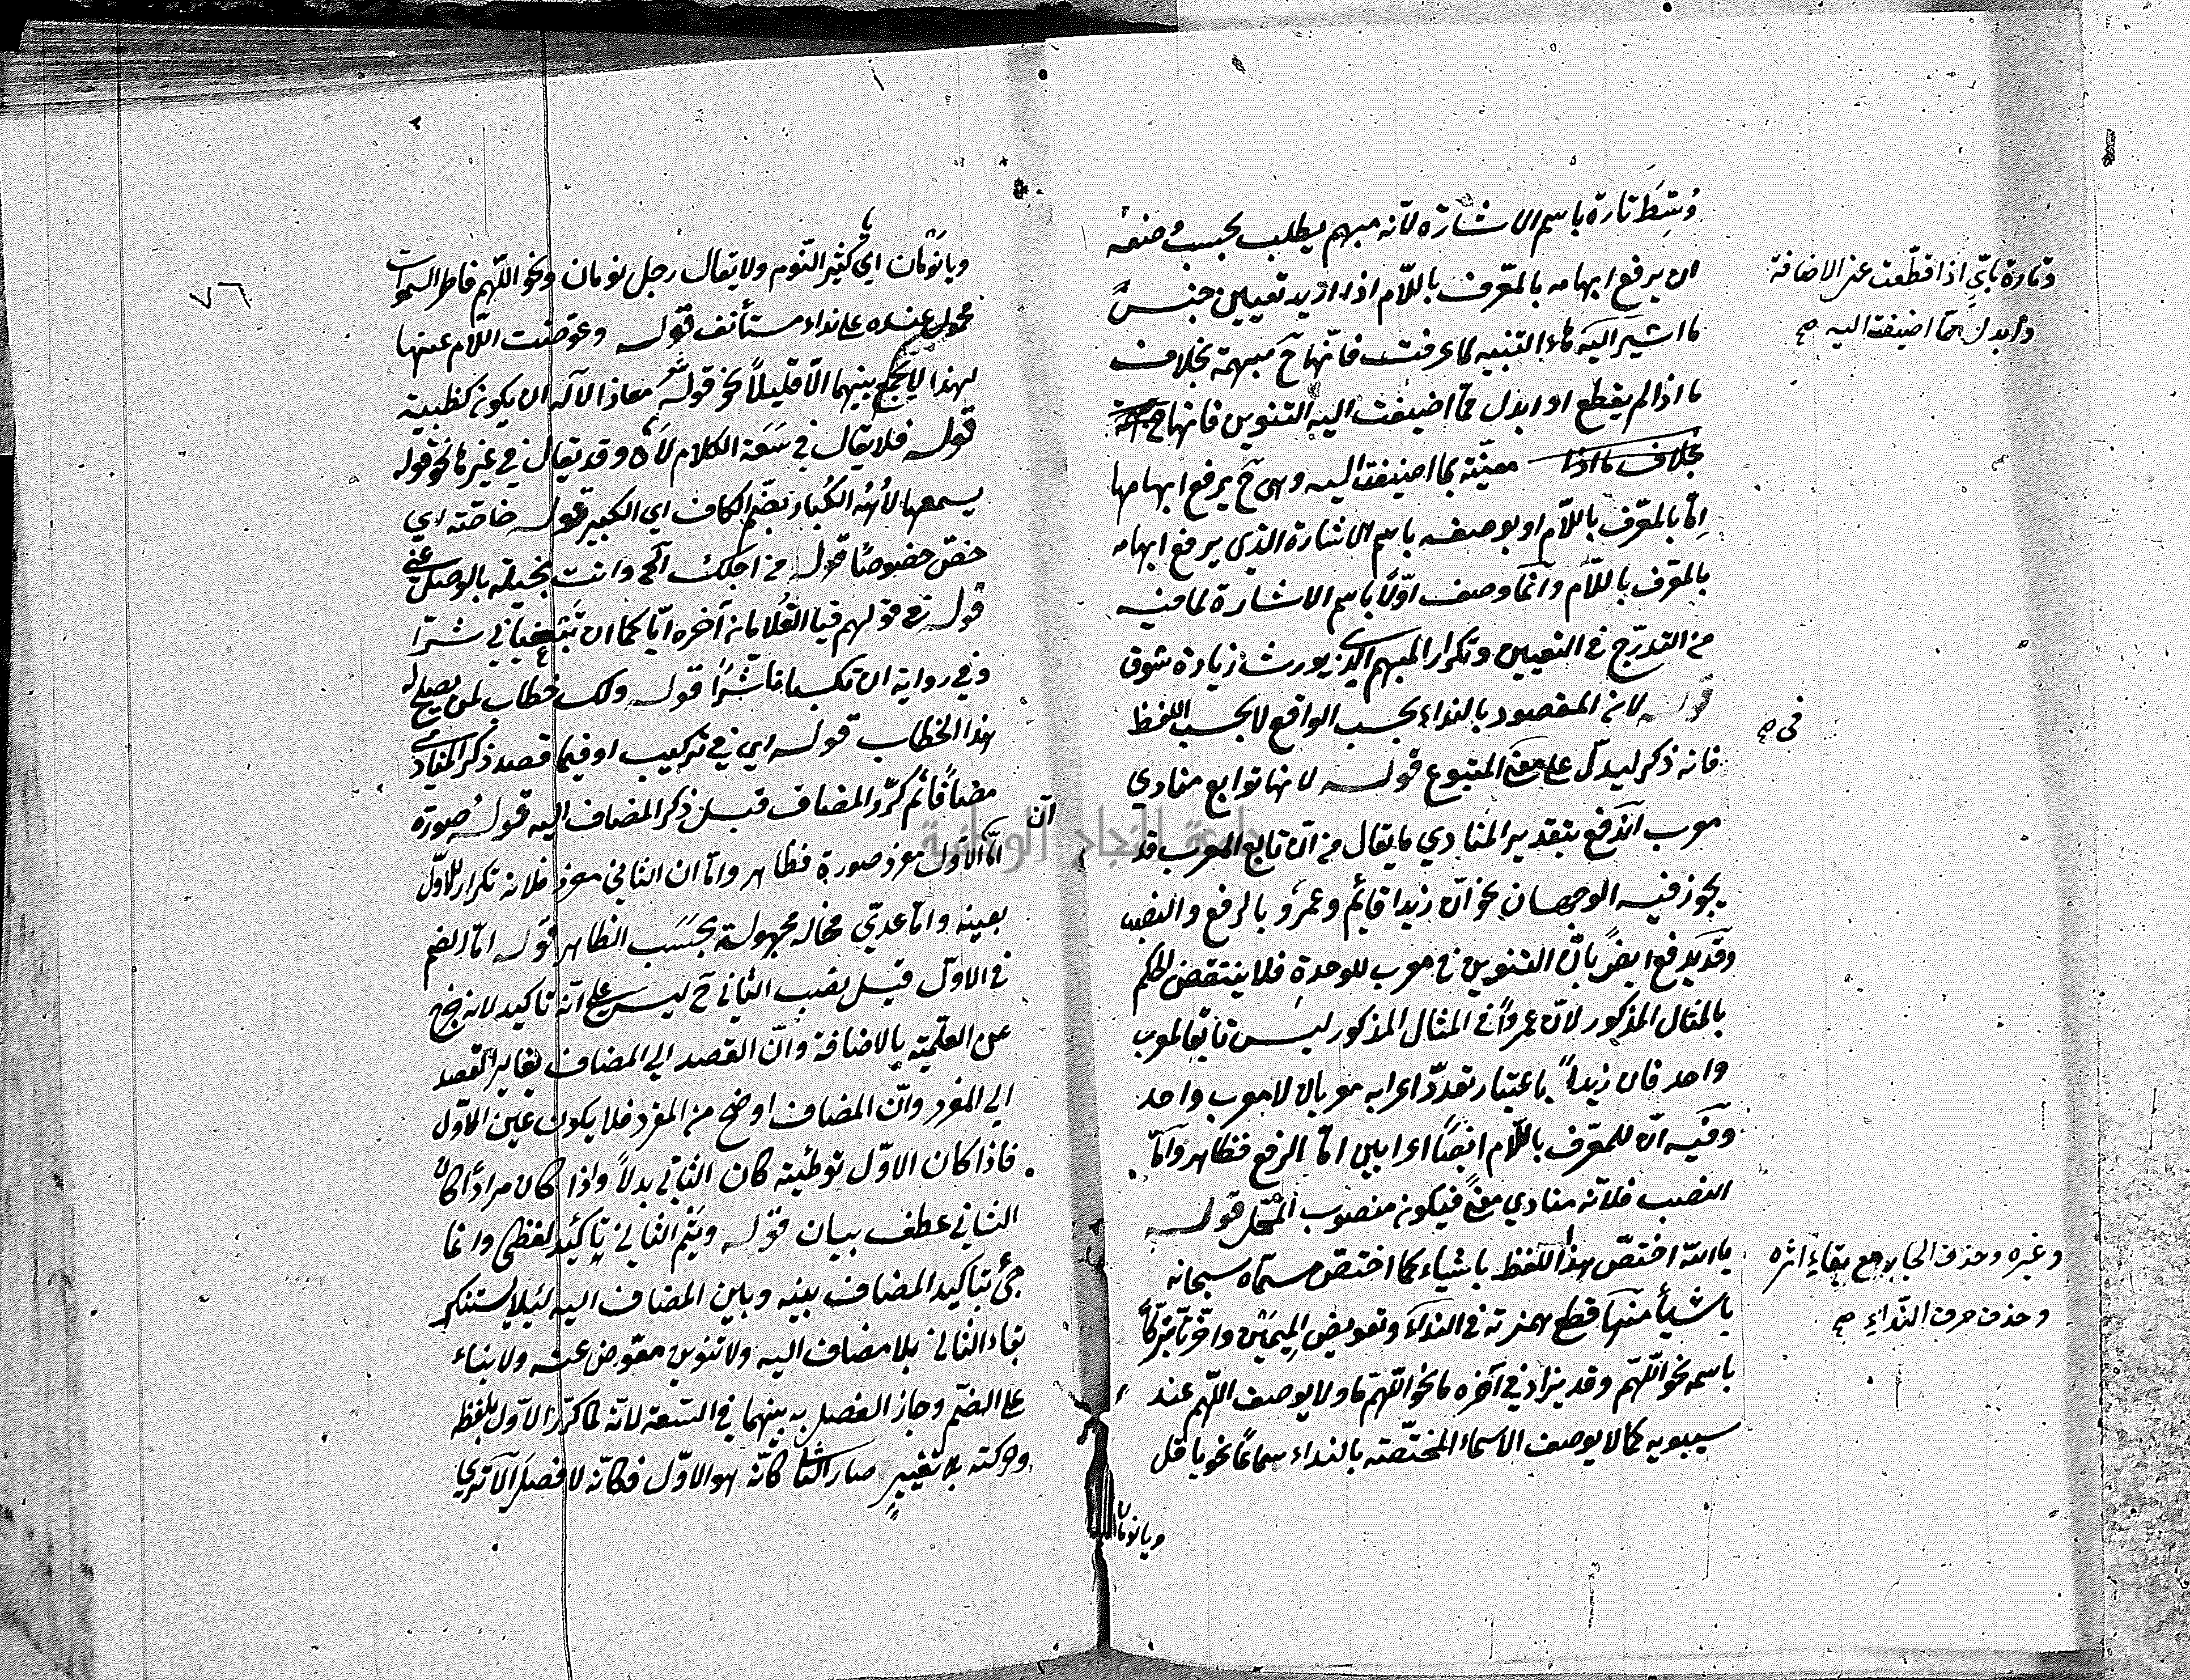 وُسِّطَ تارة باسم الاشارة لانّه مبهم يطلب بحسب وضعه
ان يرفع ابهامه بالمعّرف باللّام اذا اريد تعيين جنس
ما اشير اليه هاء التنبيه لما عرفت فانّها ح مبهمة بخلاف
ما اذا لم يقطع او ابدل عمّا اضيفت اليه التنوين فانها ح
بخلاف ما اذا معيّنة بما اضيفت اليه وهى ح يرفع ابهامها
امّا بالمعّرف باللّام او بوصفه باسم الاشارة الذى يرفع ابهامه
بالمعّرف باللّام وانّما وصف اوّلاً باسم الاشارة لما فيه
من التدرّج فى التعيين وتكرار المبهم الذى يورث زيادة شوق
قوله لانه المقصود بالنداء بحسب الواقع لا بحسب اللفظ
فانه ذكر ليدلّ على معنى المتبوع قوله لانها توابع منادي
معرب اندفع بتقدير المنادي ما يقال من انّ تابع المعرب قد
يجوز فيه الوجهان نحو انّ زيدا قائم وعمرو بالرفع والنصب
وقد يدفع ايضً بانّ التنوين فى معرب للوحدة فلا ينتقض الحكم
بالمثال المذكور لانّ عمرواً فى المثال المذكور ليس تابعًا لمعرب
واحد فان زيداً باعتبار تعدّد اعرابه معربان لا معرب واحد
وفيه انّ للمعّرف باللّام ايضًا اعرابين امّا الرفع فظاهر وامّا
النصب فلانّه منادي معنًى فيكون منصوب المحّل قوله
يا الله اختصّ هذا اللفظ باشياء كما اختصّ مسمّاه سبحانه
باشيأ منها قطع همزته فى النداء وتعويض الميمين واخّرتا تبرّكاً
باسمه نحو اللّهمّ وقد يزاد فى آخره ما نحو اللّهمّ ما ولا يوصف اللّهم عند
سيبويه كما لا يوصف الاسماء المختّصة بالنداء سماعًا نحو يا فل
ويا نومان
وتارة باىّ اذا قطّعت عن الاضافة
وابدل عمّا اضيفت اليه صح
فى صح
وغيره وحذف الجار مع بقاء اثره
وحذف حرف النّداء صح
٧٦
ويا نَوْمَان اي يا كثير النّوم ولا يقال رجل نومان ونحو اللّهم فاطر السموات
محمول عنده على نداء مستأنف قوله وعوّضت اللّام عنها
لهذا لا يجمع بينهما الّا قليلاً نحو قوله معاذ الاله ان يكون كظبية
قوله فلا يقال في سَعَة الكلام لاه وقد يقال في غيرها نحو قوله
يسمعها لاهُه الكُبار بضّم الكاف اي الكبير قوله خاصّة اي
خصّ خصوصًا قوله من اجلك الخ وانت بخيلة بالوصل عنّي
قوله فى قولهم فيا الغلامان آخره ايّا كما ان تبغيانى شرّا
وفي رواية ان تكسبانا شرًّا قوله ولك خطاب لمن يصلح له
هذا الخطاب قوله اى في تركيب او فيما قصد ذكر المنادى
مضافًا ثم كرّر المضاف قبل ذكر المضاف اليه قوله صورة
امّا انّ الاول مفرد صورة فظاهر وامّا ان الثاني مفرد فلانه تكرار للاوّل
بعينه وامّا عديّ فحاله مجهولة بحسَب الظاهر قوله امّا الضم
فى الاوّل قيل نصب الثاني ح ليس على انّه تاكيد لانه خرج
عن العلميّة بالاضافة وانّ القصد الي المضاف يغاير القصد
الي المفرد وانّ المضاف اوضح من المفرد فلا يكون عين الاوّل
فاذا كان الاوّل توطئية كان الثاني بدلاً واذا كان مراداً كان
الثاني عطف بيان قوله وتيم الثاني تاكيد لفظى وانما
جئ بتاكيد المضاف بينه وبين المضاف اليه ليلا يستنكر
بقاء الثانى بلا مضاف اليه ولا تنوين معّوض عنه ولا بناء
على الضمّ وجاز الفصل به بينهما فى السعة لانّه لما كرّر الاوّل بلفظه
وحركته بلا تغيير صار الثانى كانّه هو الاوّل فكانّه لا فصل الا ترى